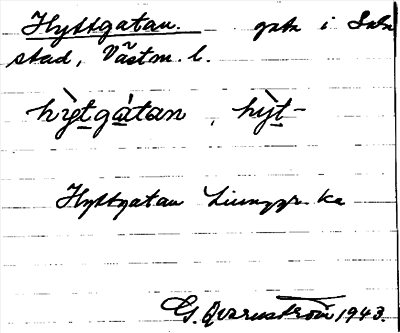 Hyttgatan. gata i Sala
stad, Västm. l.
hy̖tgátan, hy̖t-
Hyttgatan Ljunggr. ka
G. Qvarnström 1943.